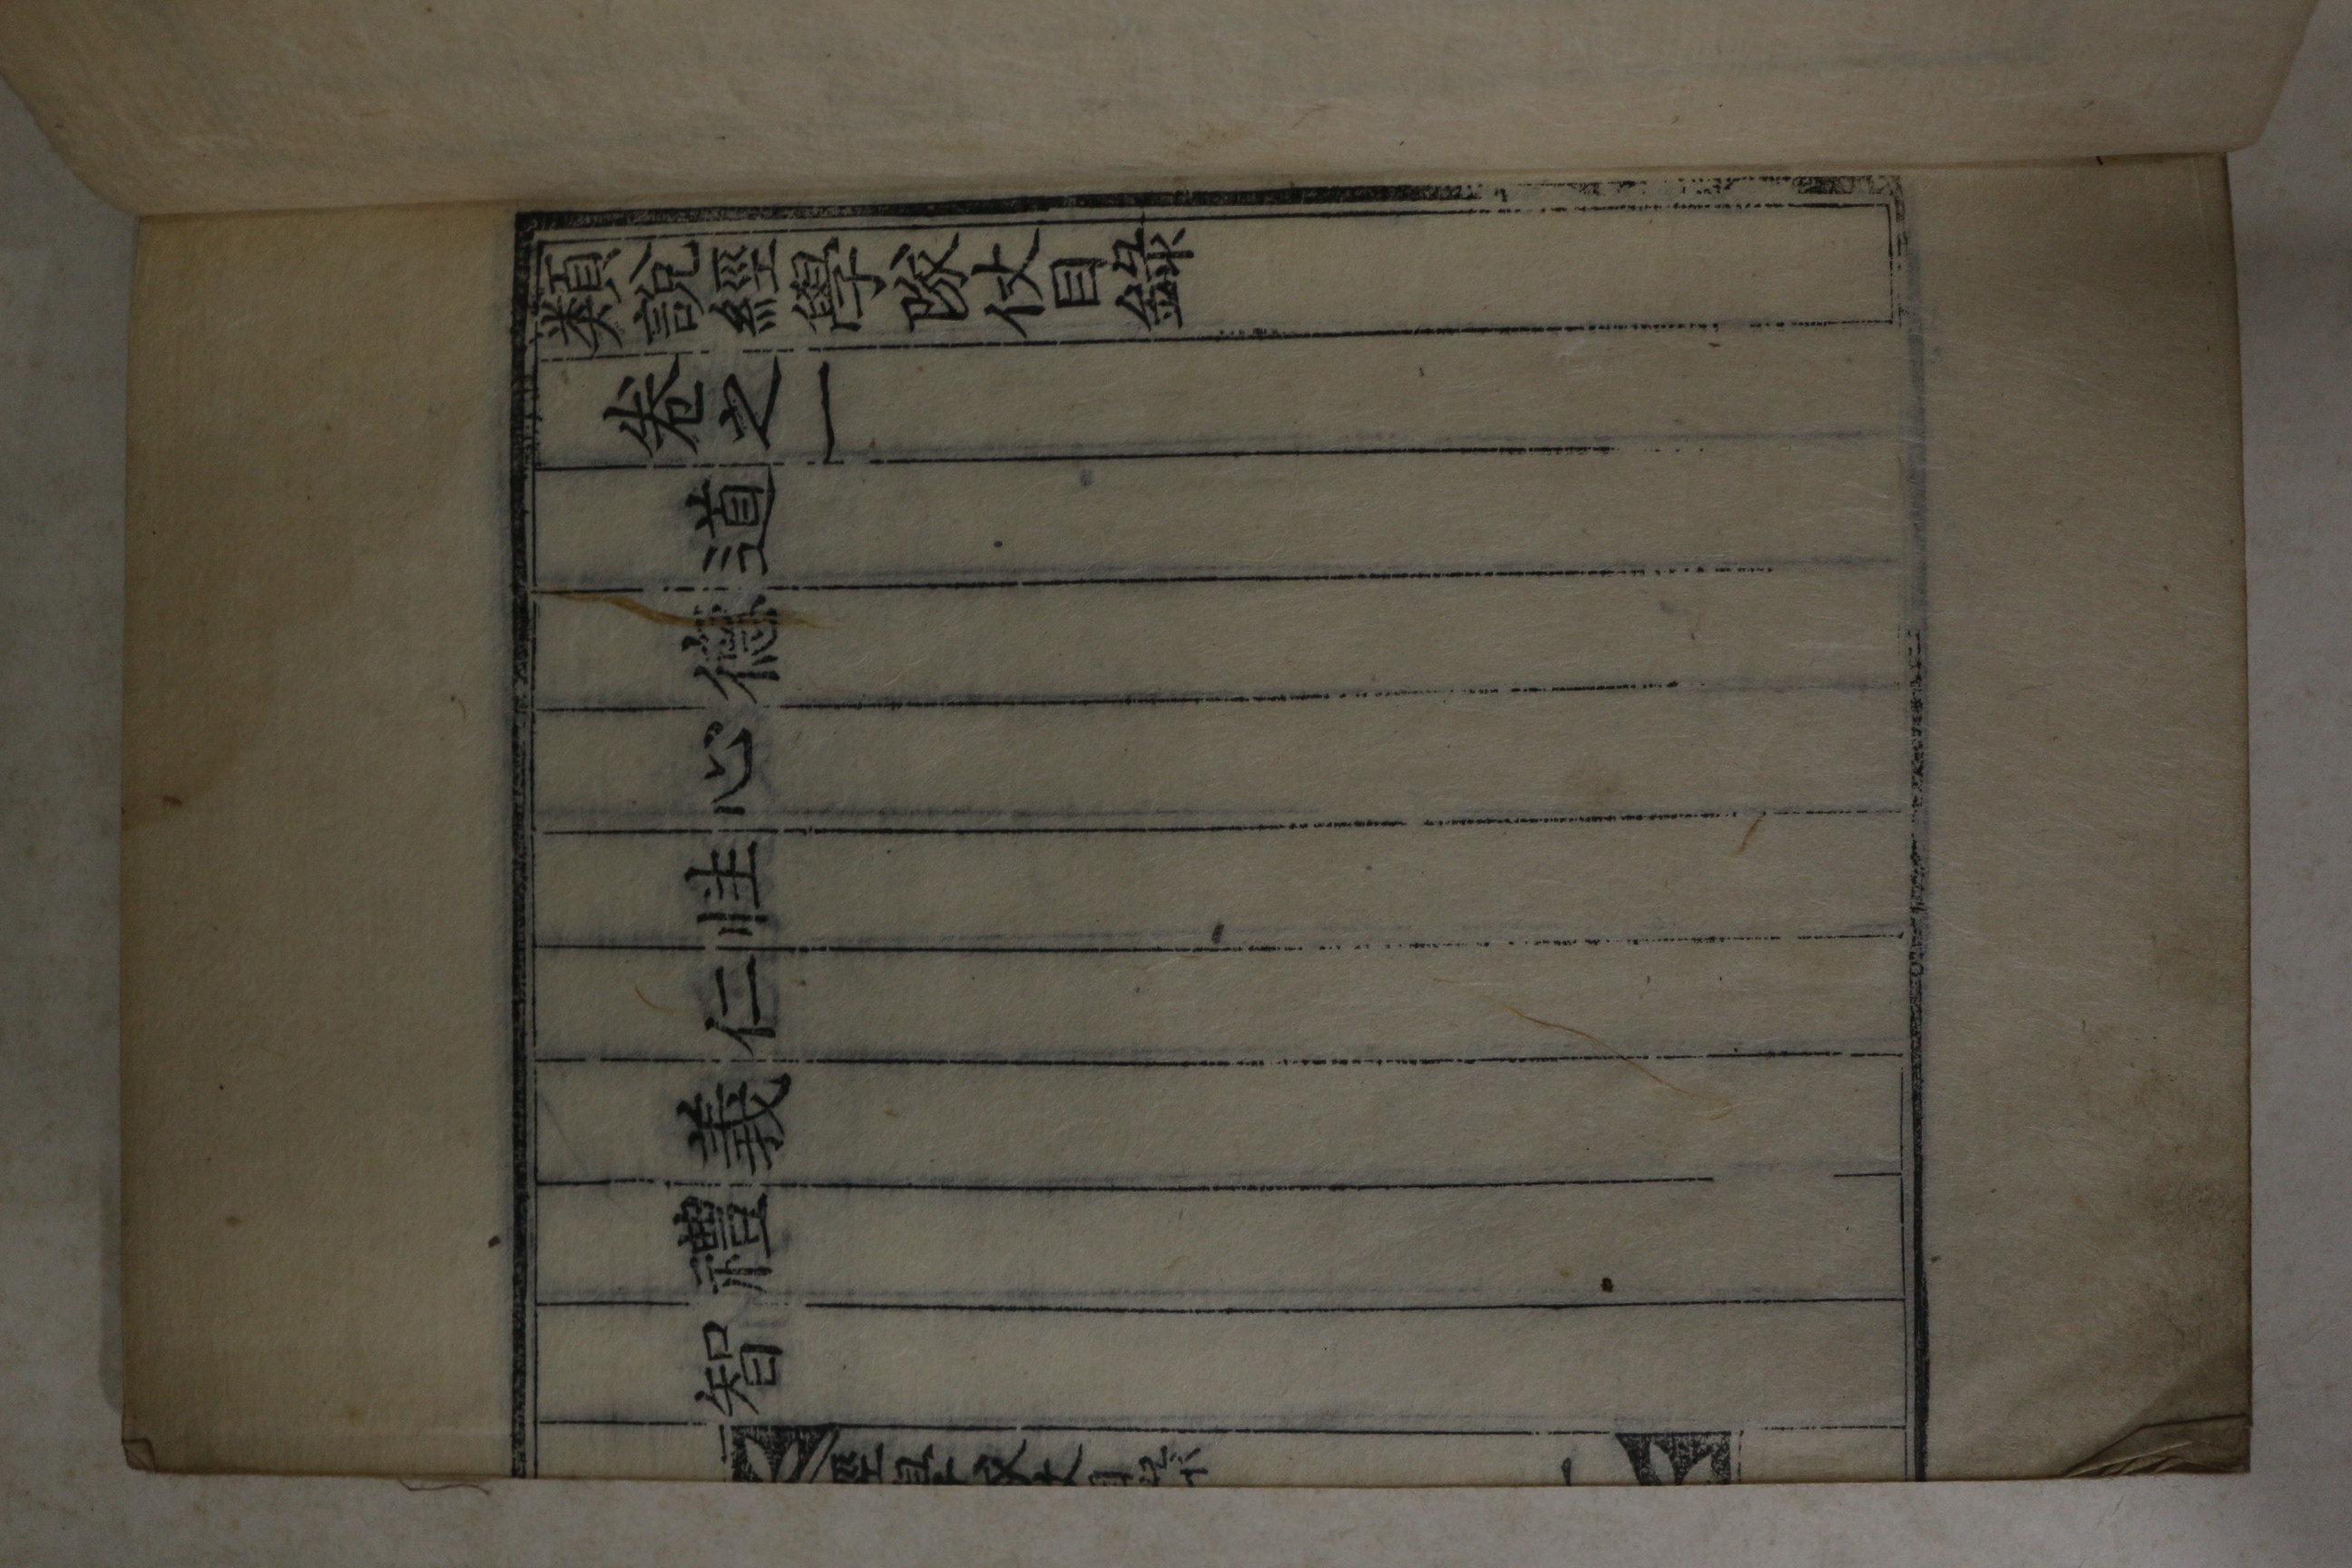 類說經學隊仗目錄
卷之一
道
德
心
性
仁
義
禮
智
經學隊仗目錄